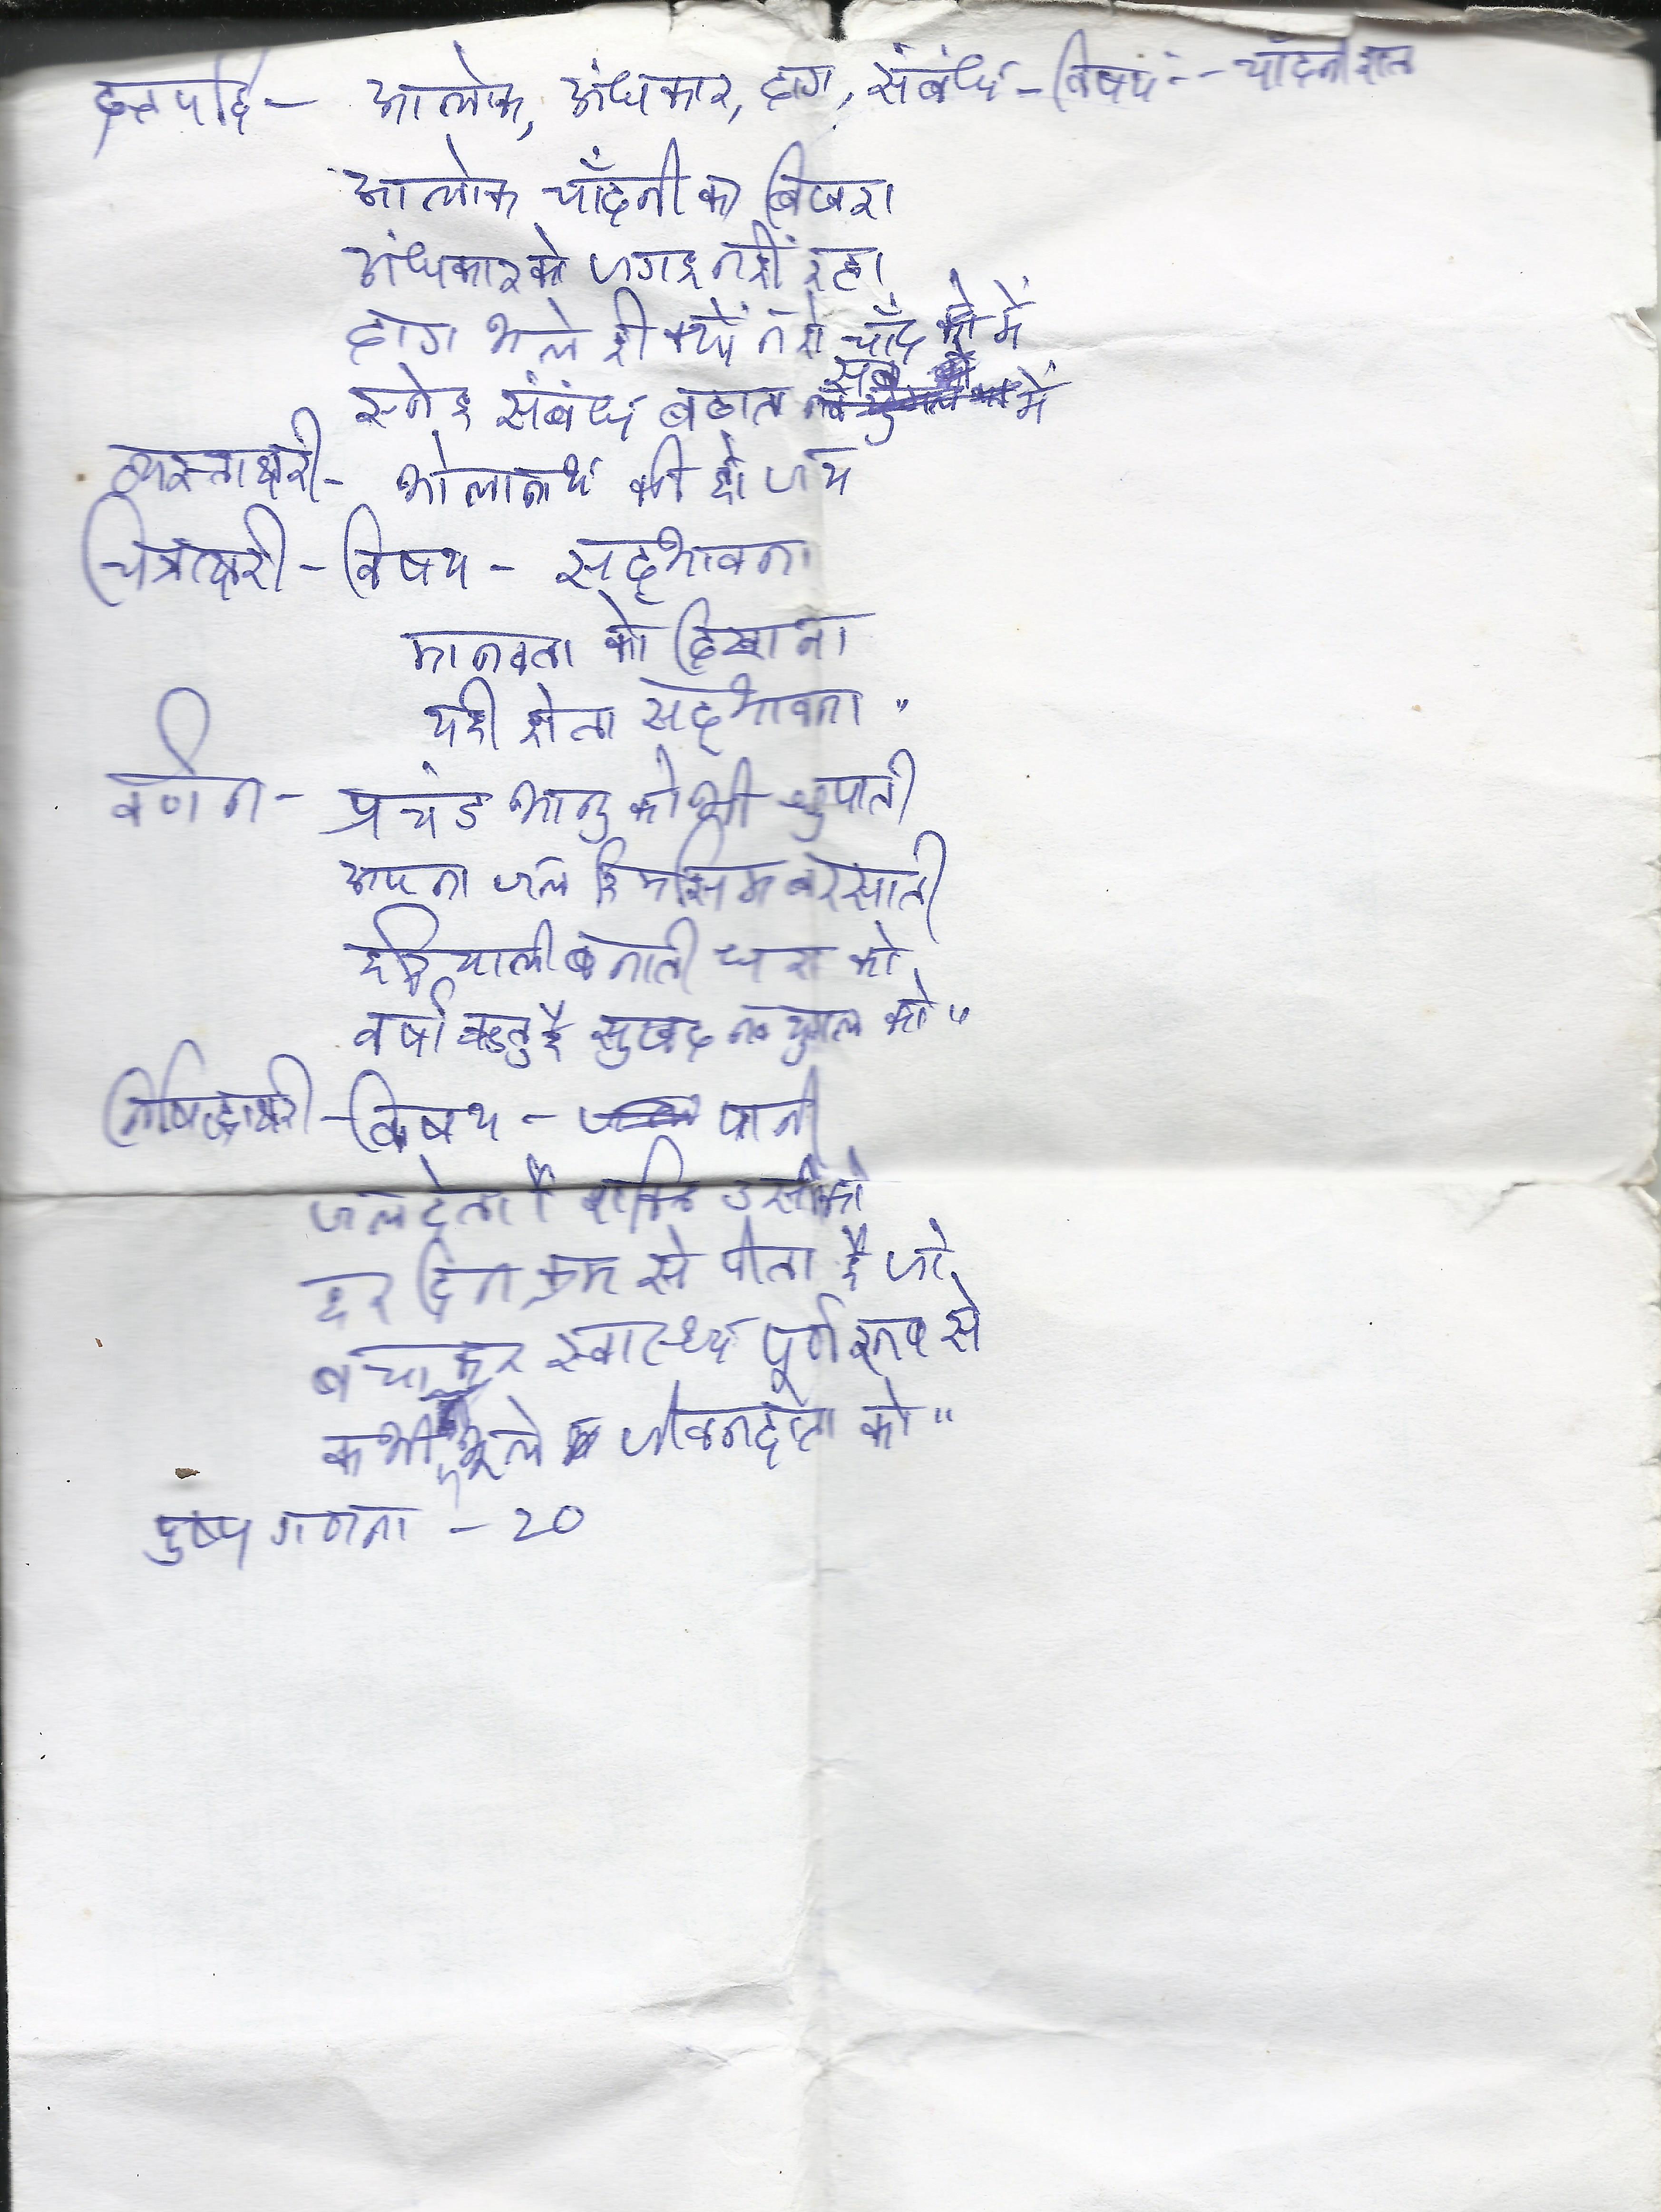 दत्तपदि - आलोक, अंधकार, दाग, संबंध - विषय - चाँदनी रात
आलोक चाँदनी का बिखरा
अंधकार को जगह नहीं रहा
दाग भले ही क्यों न हो चाँद में
स्नेह संबंध बढाता सब में
व्यस्ताक्षरी - भोलानाथ की हो जय
चित्राक्षरी - विषय - सद्भावना
मानवता को दिखाना
यही होता सद्भावना "
वर्णन - प्रचंड भानु को भी छुपाती
अपना जल रिमझिम बरसाती
हरियाली बनाती धरा को
वर्षा ऋतु है सुखद नव युगल को "
निषिद्धाक्षरी - विषय - पानी
जल देता है शक्ति उसीको
हर दिन क्रम से पीता है जो
बचाकर स्वास्थ्य पूर्ण रूप से
कभी न भूले जीवनदाता को "
पुष्प गणना - 20